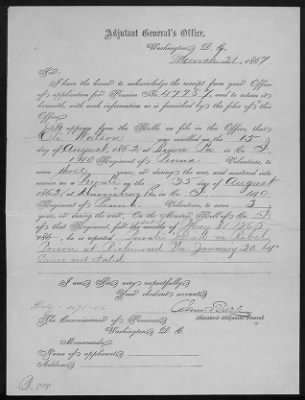 Adjutant General's Office,
Washington D. C.
March 21, 1867
Sir:
I have the honor to acknowledge the receipt from your Office
of application for Pension No. 47257, and to return it
herewith with such information as is furnished by the files of this
Office.
It appears from the Rolls on file in this Office, that
was enrolled on the 15
day of August, 1862, at Pa in Co.
140 Regiment of Penna Volunteers, to
serve three years, or during the war, and mustered into
service as a Private on the day of August
1862, at Pa in Co. 140
Regiment of Penna Volunteers, to serve 3
years, or during the war. On the Muster Roll of Co.
of that Regiment, for the months of May 31, 186
186 , he is reported Private Died in Rebel
Prison at Richmond Va January 28 64
Cause not stated
I am Sir, very respectfully,
Your obedient servant,
Assistant Adjutant General.
The Commissioner of Pensions
Washington D. C.
Memoranda:
Name of applicant
Address